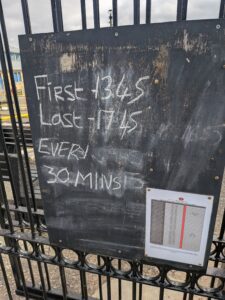 First - 1345
Last - 1745
EVERY
30 MINS